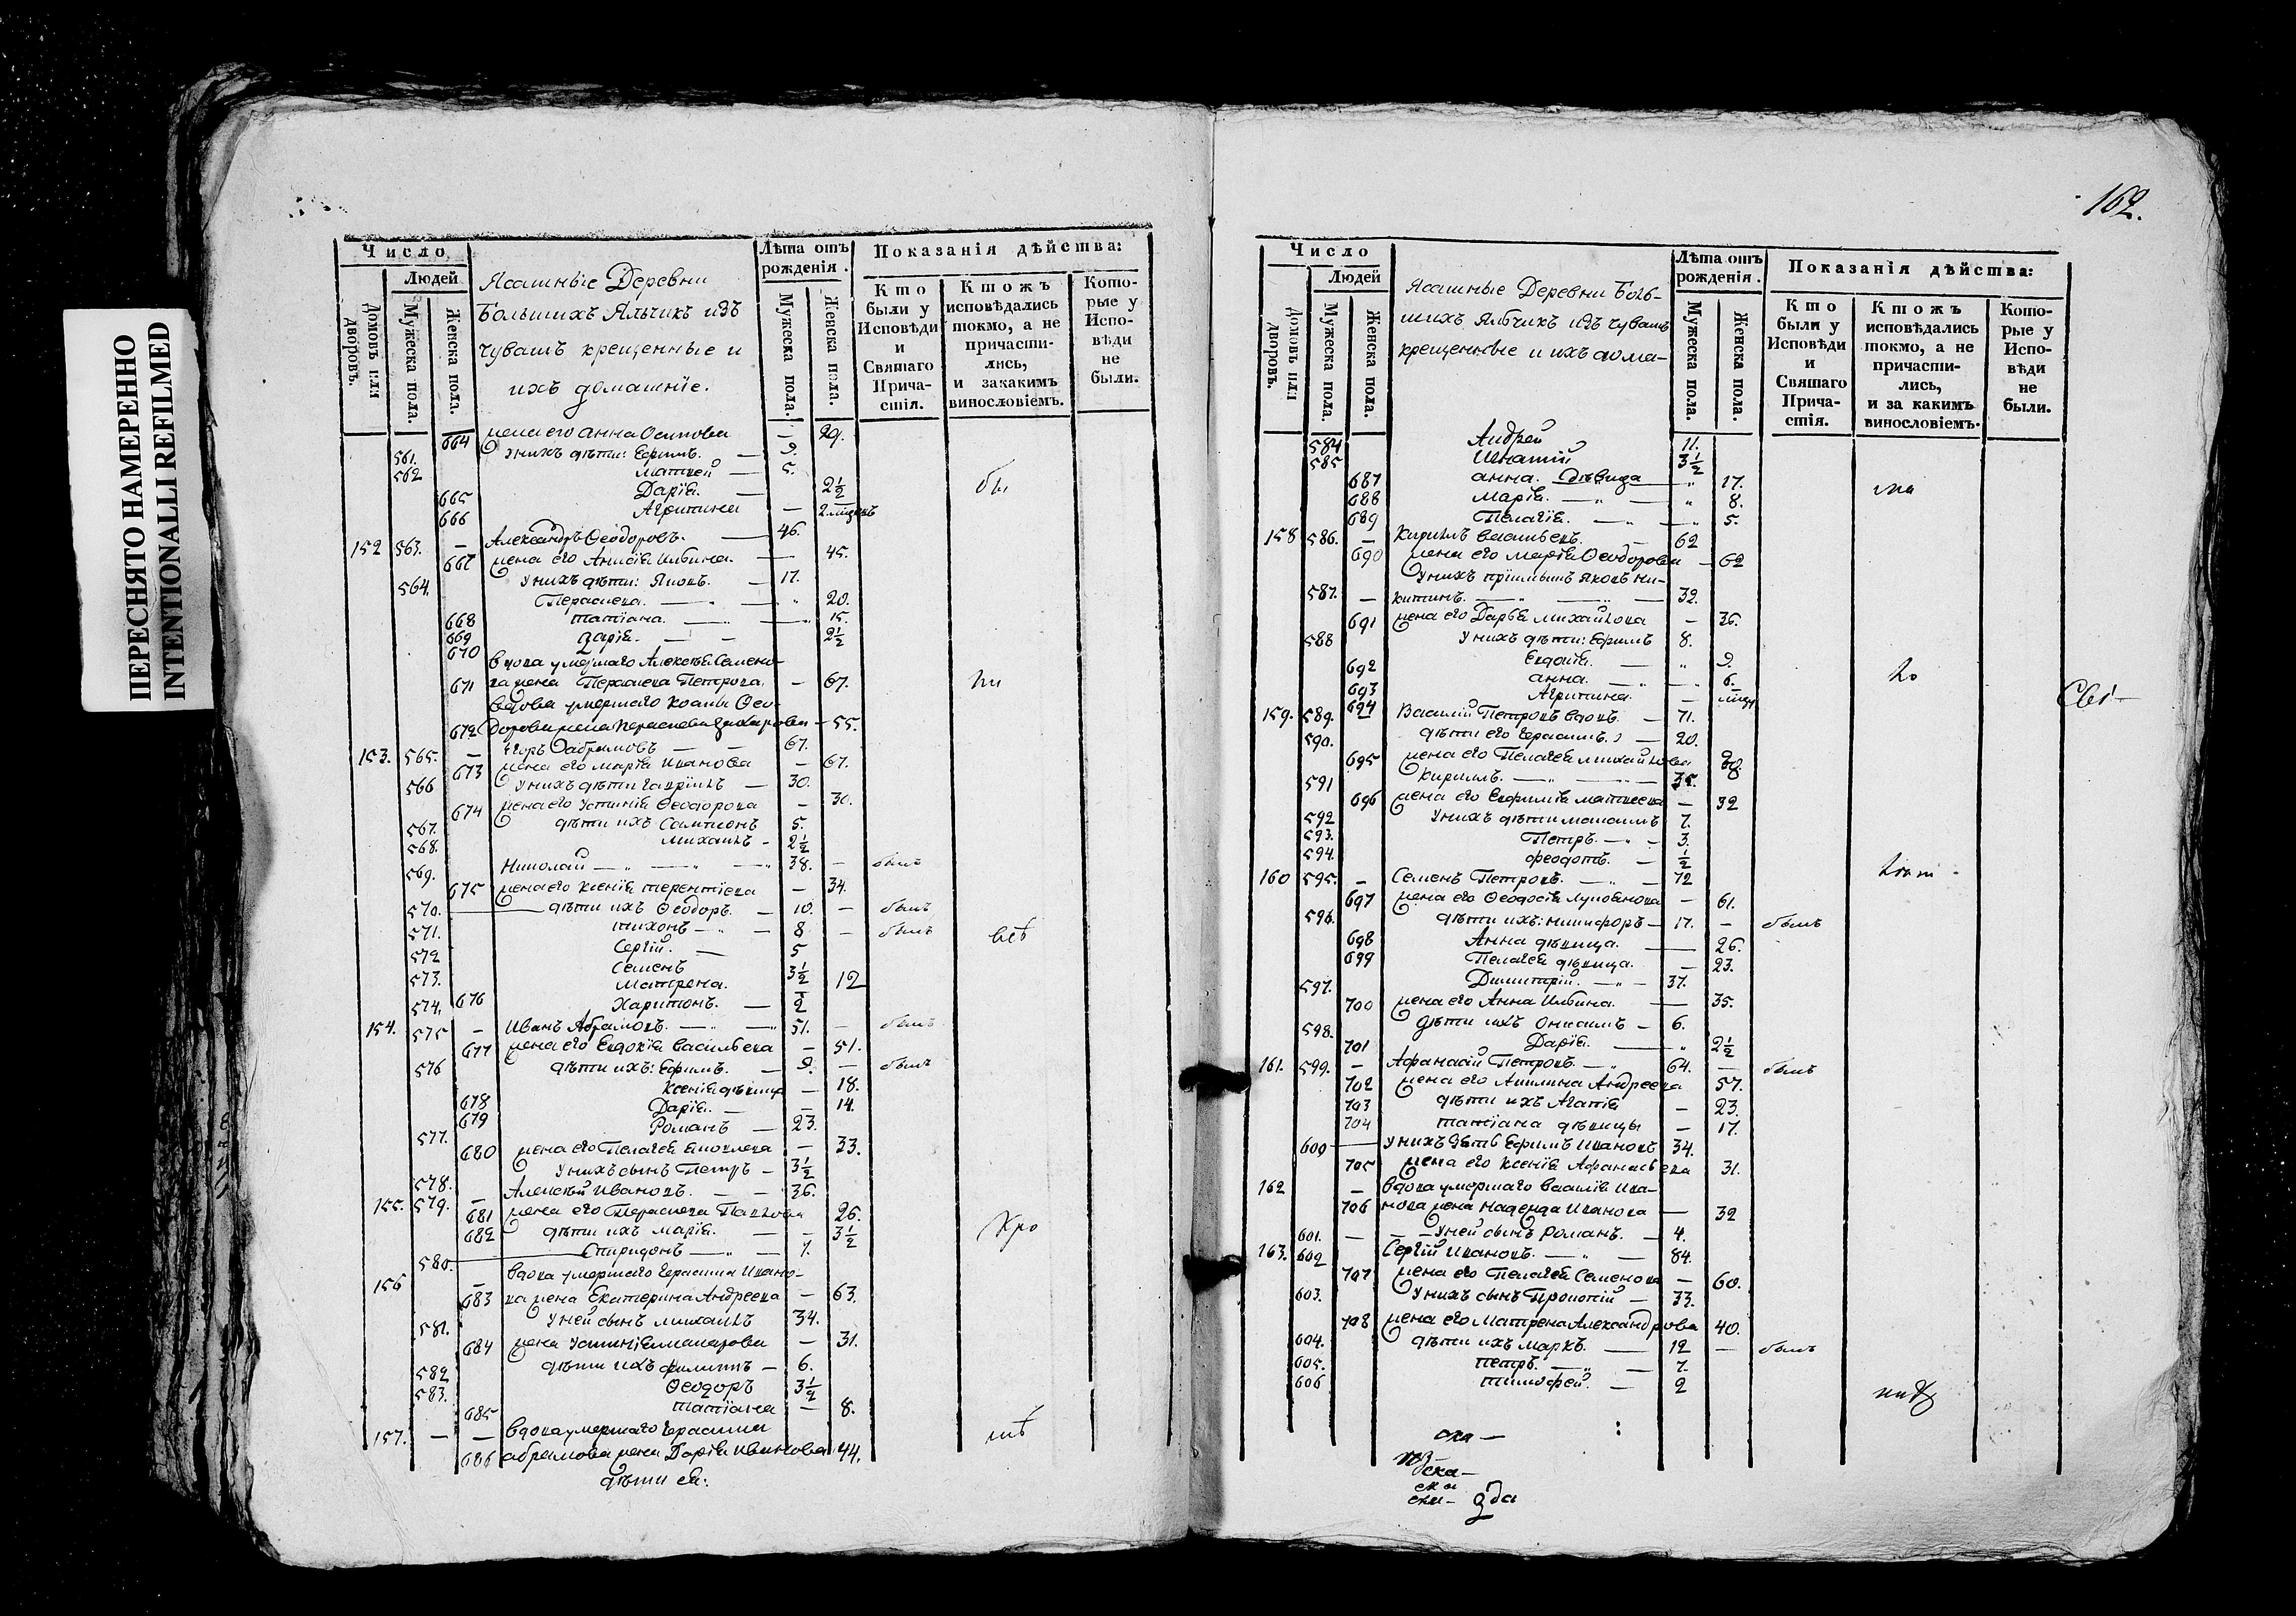 ПЕРЕСНЯТО НАМЕРЕННО
INTENTIONALLI REFILMED
Число
Людей
Домовъ или дворовъ.
Мужеска пола.
Женска пола.
Ясашные Деревни
Большихъ Яльчикъ изъ
чувашъ крещенные и
ихъ домашніе.
Лѣта отъ рожденія.
Мужеска пола.
Женска пола.
Показанія дѣйства:
Кто были у Исповѣди и Святаго Прича-стія.
Ктожъ исповѣдались токмо, а не причасти-лись, и закакимъ винословіемъ.
Кото-рые у Испо-вѣди не были.
664 жена его Анна Осипова — 29.
561. у нихъ дѣти: Ефимъ. — 9.
562 Матвей — 5.
665 Дарія. — 2½
666 Агрипина — 2
152 563. — Александръ Ѳеодоровъ. — 46.
667 жена его Анисія Ильина. — 45.
564. у нихъ дѣти: Яковъ. — 17.
668 Параскева. — 20.
669 Татіана. — 15.
670 Дарія. — 2½
вдова умершаго Алексѣя Семено-
671 ва жена Параскева Петрова. — 67.
вдова умершаго Іоанна Ѳео-
672 дорова жена Параскева Захарова — 55.
153. 565. — Егоръ Абрамовъ — 67.
673 жена его Марія Иванова — 67.
566 у нихъ дѣти Гавріилъ — 30.
674 жена его Устинія Ѳеодорова — 30.
567. дѣти ихъ Сампсонъ 5.
568. Михаилъ - 2½
569. Николай — 38. — былъ
675 жена его Ксенія Терентіева — 34.
570. дѣти ихъ Ѳеодоръ. — 10. — былъ
571. Тихонъ — 8 — былъ
572 Сергій. — 5
573. Семенъ 3½
676 Матрена. 12
574. Харитонъ. — ½
154. 575 — Иванъ Абрамовъ. — 51. — былъ
677 жена его Евдокія Васильева — 51.
576 дѣти ихъ: Ефимъ. — 9. — былъ
678 Ксенія дѣвица — 18.
679 Дарія. — 14.
577. Романъ — 23.
680 жена его Пелагея Яковлева — 33.
578. у нихъ сынъ Петръ — 3½
155. 579. — Алексѣй Ивановъ. — 36.
681 жена его Параскева Павлова 26.
682 дѣти ихъ Марія. — 3½
580. Спиридонъ — 7.
156 — вдова умершаго Герасима Ивано-
683 ва жена Екатерина Андреева — 63.
581. у ней сынъ Михаилъ 34.
684 жена Устинія Макарова — 31.
582 дѣти ихъ Филиппъ — 6.
583. Ѳеодоръ 3½
685 Татіана — 8.
157. — — вдова умершаго Герасима
686 Абрамова жена Дарія Иванова 44.
дѣти ея:
162.
Число
Людей
Домовъ или дворовъ.
Мужеска пола.
Женска пола.
Ясашные Деревни Боль-
шихъ Яльчикъ изъ чувашъ
крещенные и ихъ дома-
Лѣта отъ рожденія.
Мужеска пола.
Женска пола.
Показанія дѣйства:
Кто были у Исповѣди и Святаго Прича-стія.
Ктожъ исповѣдались токмо, а не причасти-лись, и за какимъ винословіемъ.
Кото-рые у Испо-вѣди не были.
584 Андрей 11.
585 Игнатій 3½
687 Анна. Дѣвица 17.
688 Марія. — 8.
689 Пелагія. — 5.
158 586. — Кирилъ Васильевъ. — 62
690 жена его Марія Ѳеодорова — 62
у нихъ пріимышъ Яковъ Ни-
587. — китинъ. — 32.
691 жена его Дарья Михайлова — 36.
588 у нихъ дѣти: Ефимъ 8.
692 Евдокія. — 9.
693 Анна. — 6.
694 Агрипина. —
159. 589. Василій Петровъ вдовъ. — 71.
590. дѣти его Герасимъ. — 20.
695 жена его Пелагея Михайлова
591 Кирилъ. — 35.
696 жена его Евфимія Матвеева — 32
592 у нихъ дѣти 7.
593. Петръ. — 3.
594. Феодотъ. — ½
160 595. — Семенъ Петровъ. — 72
697 жена его Ѳеодосія — 61.
596. дѣти ихъ: Никифоръ — 17. — былъ
698 Анна дѣвица. — 26.
699 Пелагея дѣвица. — 23.
597. Димитрій. — 37.
700 жена его Анна Ильина. — 35.
598. дѣти ихъ Онисимъ — 6.
701 Дарія. — 2½
161. 599. — Афанасій Петровъ. — 64. — былъ
702 жена его Акилина Андреева 57.
703 дѣти ихъ Агапія — 23.
704 Татіана дѣвицы — 17.
600 у нихъ зять Ефимъ Ивановъ 34.
705 жена его Ксенія Афанасьева 31.
162 — вдова умершаго Василія Ива-
706 нова жена Надежда Иванова — 32
601. — — у ней сынъ Романъ. — 4.
163. 602 Сергій Ивановъ. — 84.
707 жена его Пелагея Семенова — 60.
603. у нихъ сынъ Прокопій — 33.
708 жена его Матрена Александрова 40.
604. дѣти ихъ Маркъ. — 12 — былъ
605. Петръ. — 7.
606 Тимофей. — 2